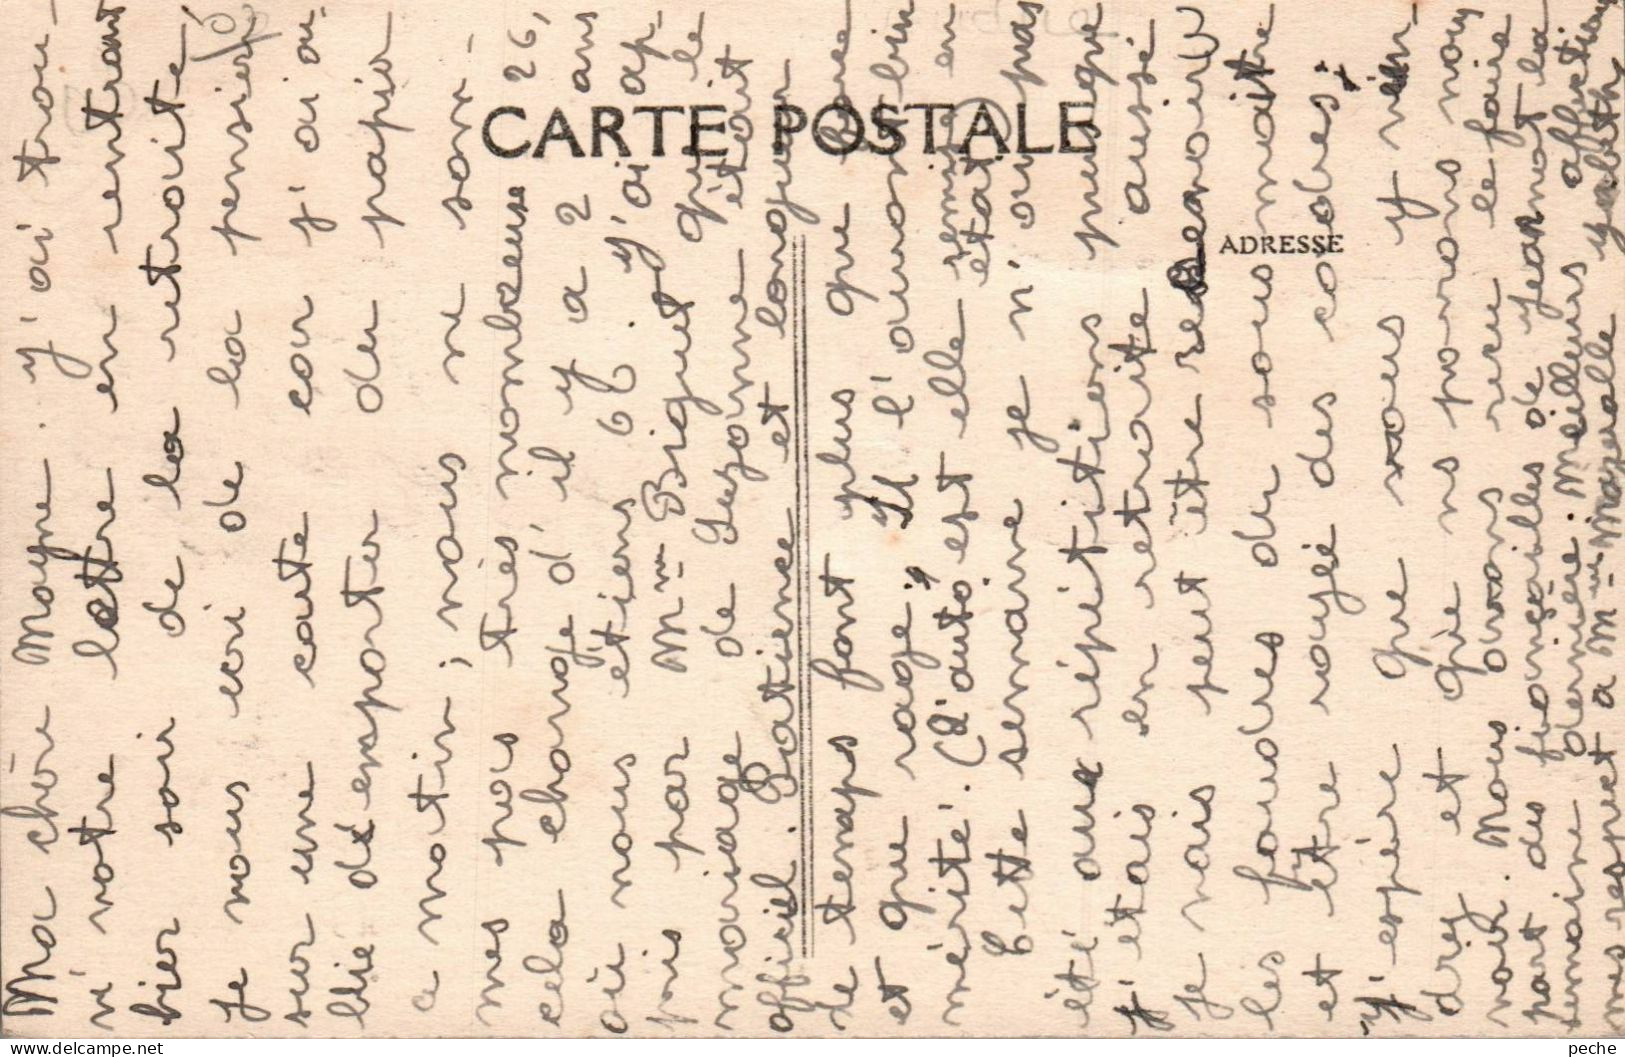 CARTE POSTALE
ADRESSE
Ma chère Mayne. j'ai trou-
vé votre lettre en rentrant
hier soir de la retraite
je vous écri de la pension
sur une carte car j'ai ou-
blié d'emporter du papier
ce matin; nous ne som-
mes pas très nombreuses 26,
cela change d'il y a 2 ans
où nous étiens 66. j'ai ap-
pris par Mme Biguet que le
mariage de Suzanne était
officiel. Patience et longueur
de temps font plus que force
et que rage. Il l'avait bien
mérité. (L'auto est elle remise en
état)
Cette semaine je n'ai pas
été aux répétitions puisque
j'étais en retraite aussi
je vais peut être recevoir
les foudres du sous maitre
et être rayé des cadres;
j'espère que vous y vien-
drez et que ns pourrons nous
voir. Nous avons reçu le faire
part des fiançailles de Jeannot la
semaine dernière. Meilleurs affections
mes respect a Mme Mazeralle yabeth
peche
www.delcampe.net